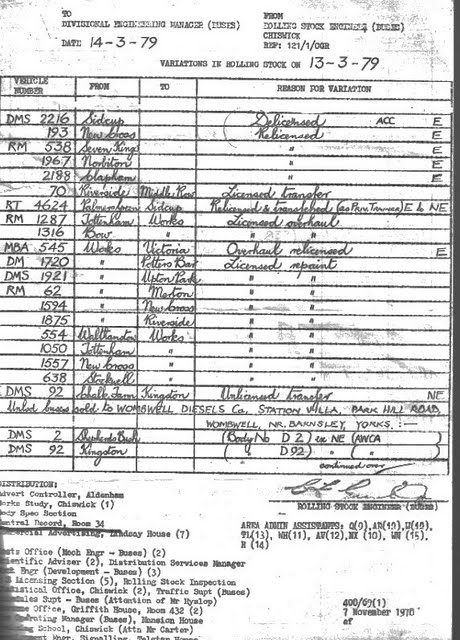 TO FROM
DIVISIONAL ENGINEERING MANAGER (BUSES) ROLLING STOCK ENGINEER (BUSES)
CHISWICK
DATE 14-3-79 REF: 121/1/OGR
VARIATIONS IN ROLLING STOCK ON 13-3-79
VEHICLE NUMBER FROM TO REASON FOR VARIATION
DMS 2216 Sidcup Delicensed ACC E
193 New Cross Relicensed E
RM 538 Seven Kings " E
1967 Norbiton " E
2188 Clapham " E
70 Riverside Middle Row Licensed transfer
RT 4624 Palmers Green Sidcup Relicensed & transferred (as Prin. Trainer) E to NE
RM 1287 Tottenham Works Licensed overhaul
1316 Bow " " "
MBA 545 Works Victoria Overhaul relicensed E
DM 1720 " Potters Bar Licensed repaint
DMS 1921 " Upton Park " "
RM 62 " Merton " "
1594 " New Cross " "
1875 " Riverside " "
554 Walthamstow Works " "
1050 Tottenham " " "
1557 New Cross " " "
638 Stockwell " " "
DMS 92 Chalk Farm Kingston Unlicensed transfer NE
Unlcd buses sold to WOMBWELL DIESELS Co., STATION VILLA, PARK HILL ROAD,
WOMBWELL, NR. BARNSLEY, YORKS. :—
DMS 2 Shepherds Bush (Body No D 2) ex NE (AWCA )
DMS 92 Kingston ( " D 92) " " ( " )
continued over
ROLLING STOCK ENGINEER (BUSES)
DISTRIBUTION:
Advert Controller, Aldenham
Works Study, Chiswick (1)
Body Spec Section
Central Record, Room 34
Commercial Advertising, Lindsay House (7)
AREA ADMIN ASSISTANTS: Q(9), AB(19), W(49),
TL(13), WH(11), AW(12), NX (10), WN (15),
R (14)
Costs Office (Mech Engr - Buses) (2)
Scientific Adviser (2), Distribution Services Manager
Mech Engr (Development - Buses) (3)
Licensing Section (5), Rolling Stock Inspection
Statistical Office, Chiswick (2), Traffic Supt (Buses)
Schedules Supt - Buses (Attention of Mr Hyslop)
Office, Griffith House, Room 432 (2)
Operating Manager (Buses), Mansion House
School, Chiswick (Attn Mr Carter)
Engr. Signalling, Telstar House
400/69(1)
7 November 1978
af